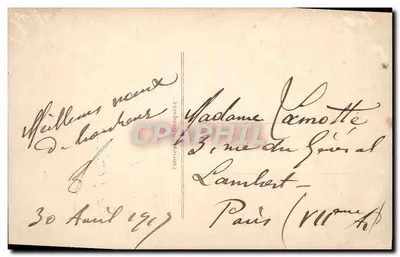 Meilleurs voeux
de bonheur
30 Avril 1917
Fabrication Française
Madame Lamotte
3, rue du Général
Lambert
Paris (VIIème A)
CPAPHIL.com